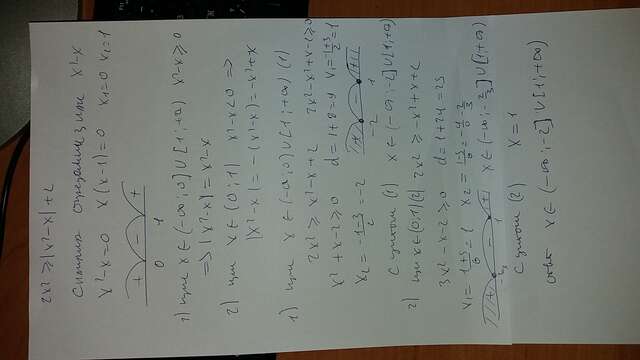 2x² ≥ |x²-x| + 2
сначала определим знак x²-x
x²-x=0 x(x-1)=0 x₁=0 x₂=1
+ - +
0 1
1) при x∈(-∞;0]∪[1;+∞) x²-x≥0
=> |x²-x| = x²-x
2) при x∈(0;1) x²-x<0 =>
|x²-x| = -(x²-x) = -x²+x
1) при x∈(-∞;0)∪[1;+∞) (1)
2x² ≥ x²-x+2 2x²-x²+x-2≥0
x²+x-2≥0 d=1+8=9 x₁=(-1+3)/2=1
x₂ = (-1-3)/2 = -2 + - +
-2 1
с учетом (1) x∈(-∞;-2]∪[1;+∞)
2) при x∈(0;1) (2) 2x² ≥ -x²+x+2
3x²-x-2≥0 d=1+24=25
x₁ = (1+5)/6 = 1 x₂ = (1-5)/6 = -4/6 = -2/3
+ - + x∈(-∞;-2/3]∪[1;+∞)
-2/3 1
с учетом (2) x=1
ответ x∈(-∞;-2]∪[1;+∞)